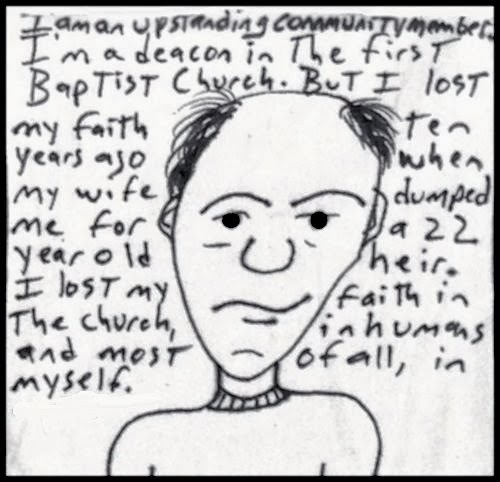 I am an upstanding community member.
I'm a deacon in The First
Baptist Church. But I lost
my faith Ten
years ago when
my wife dumped
me for a 22
year old heir.
I lost my faith in
The church, in humans
and most of all, in
myself.